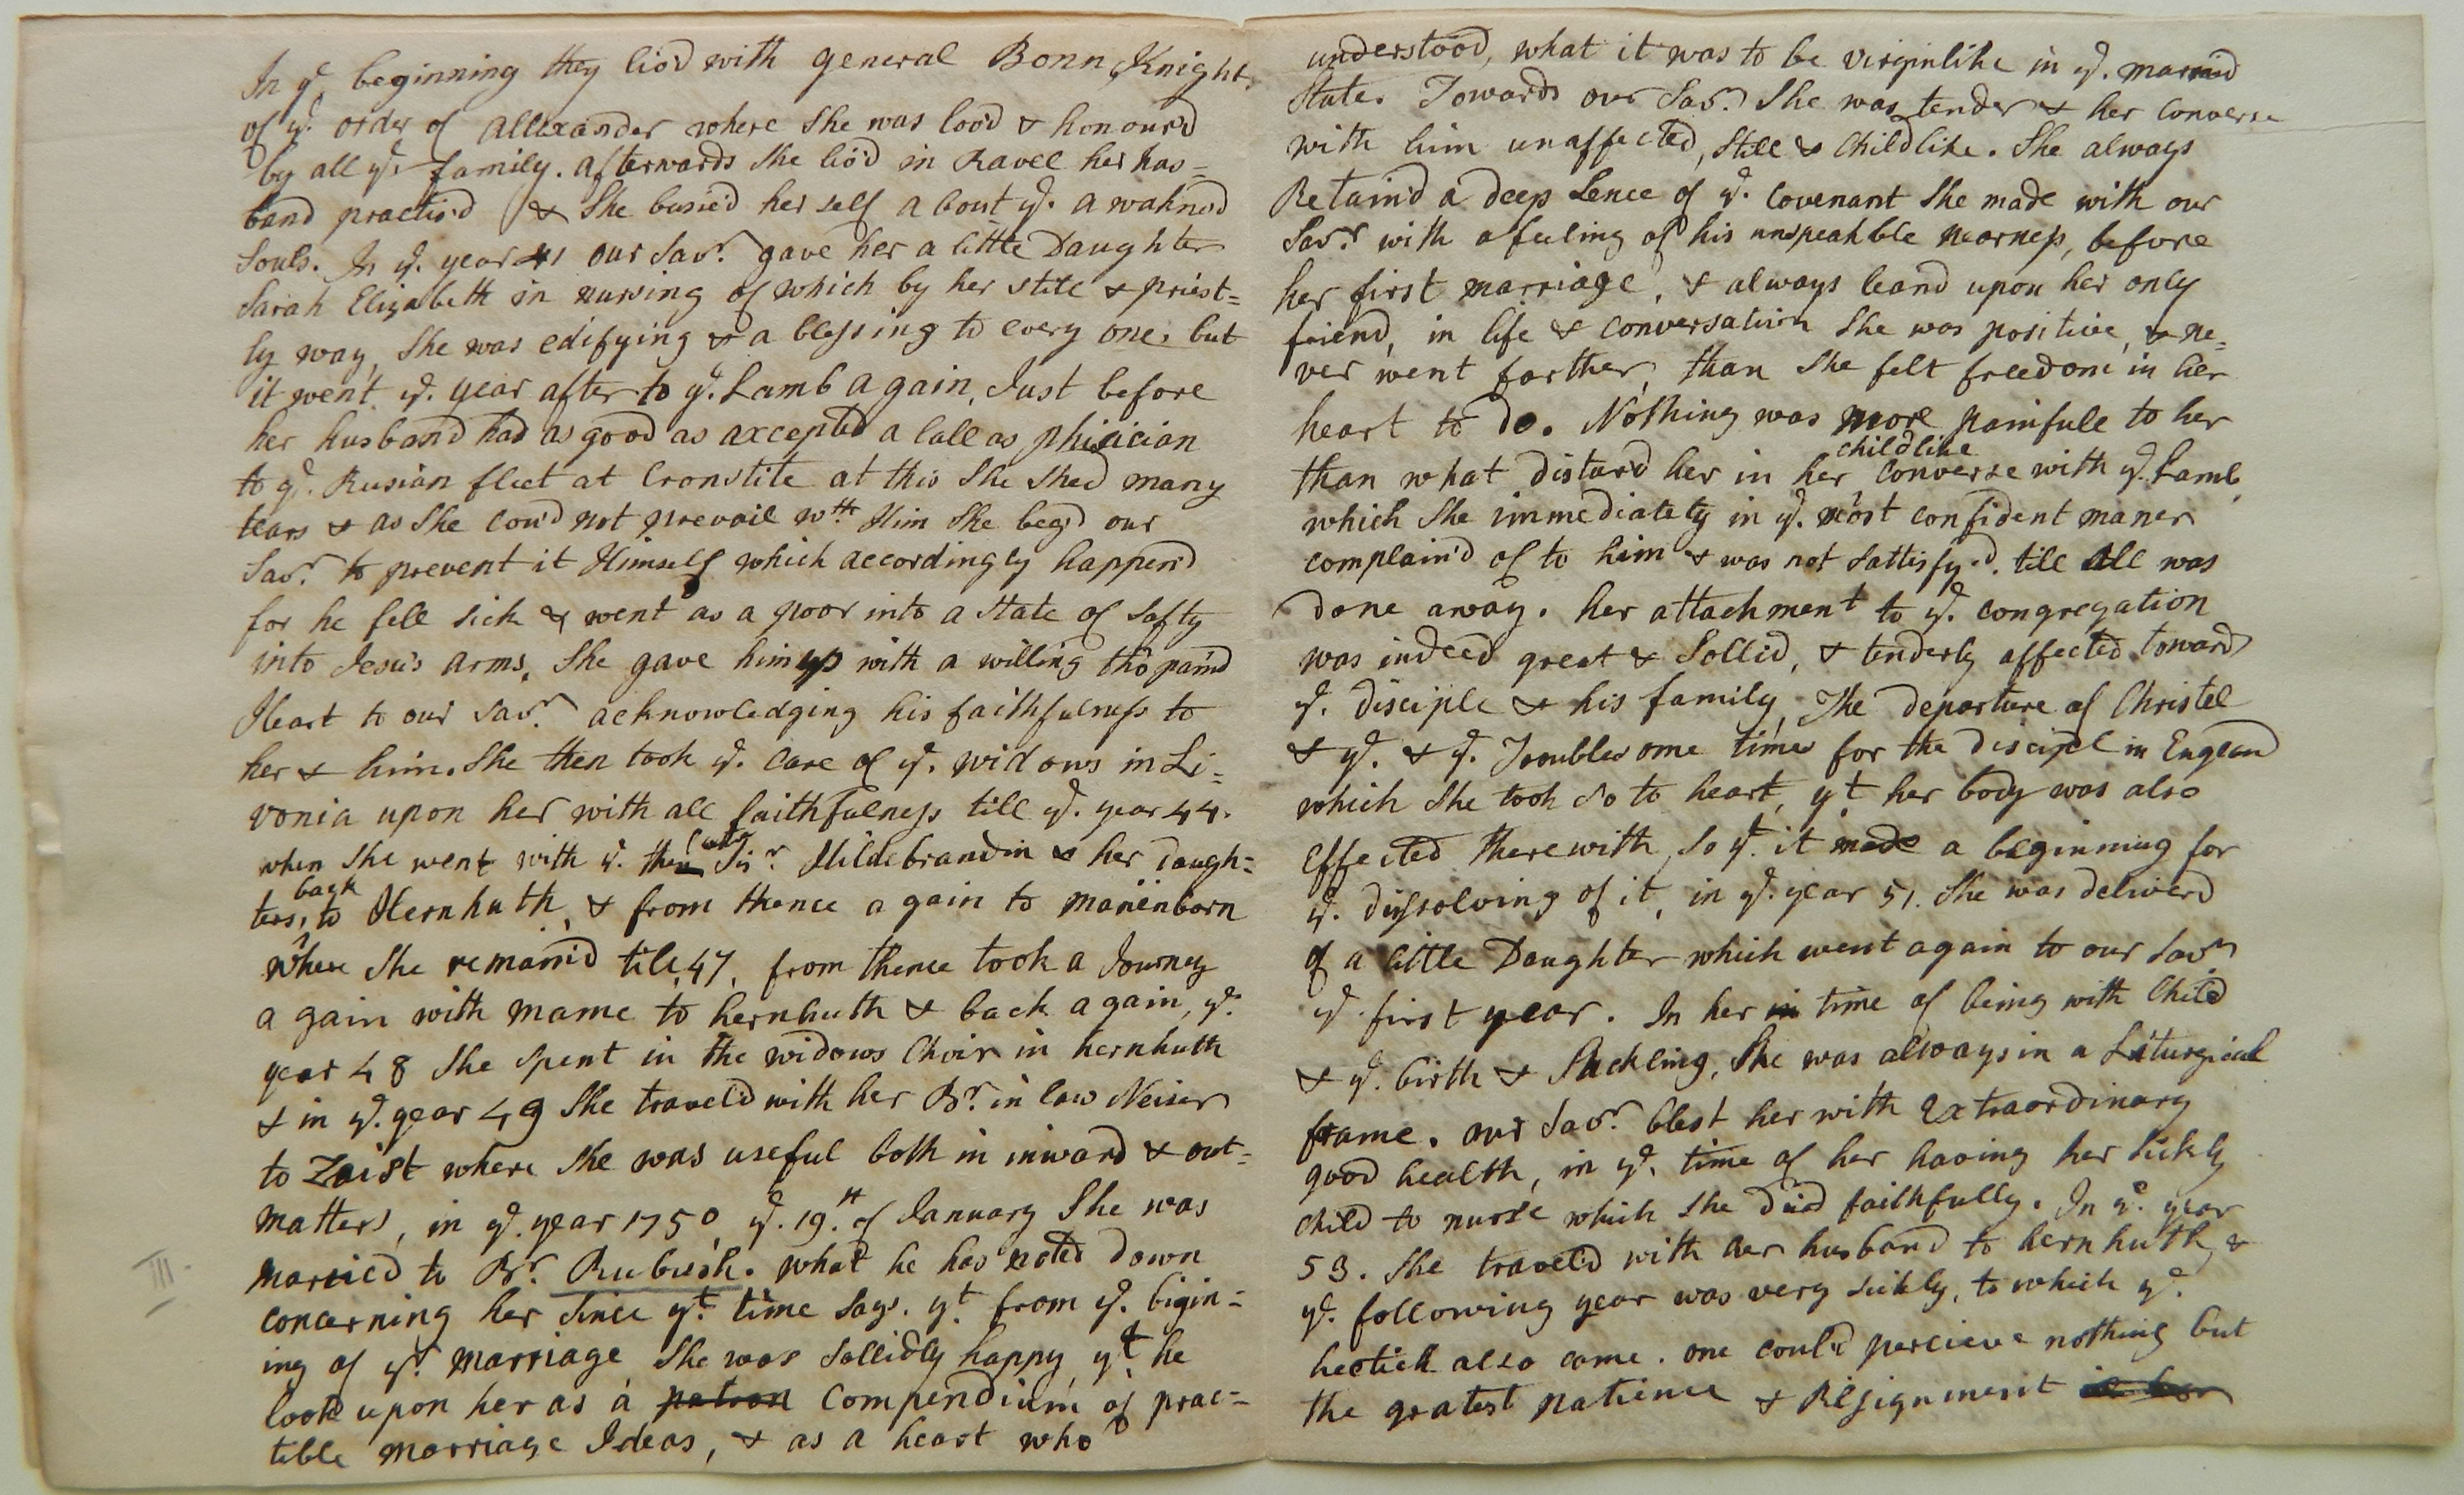 In ye beginning they liv'd with general Bonn, Knight
of ye. order of Allexander where She was lov'd & honour'd
by all ye. family. afterwards She liv'd in Ravel her hus=
band practis'd & She busie'd her self about ye. awakned
Souls. In ye. year 41 our Savr. gave her a little Daughter
Sarah Elizabeth in nursing of which by her still & priest=
ly way, She was edifying & a blessing to every one. but
it went ye. year after to ye. Lamb again, Just before
her husband had as good as axcepted a Call as phisician
to ye. Rusian fleet at Cronstite at this She shed many
tears & as She cou'd not prevail wth. Him She beg'd our
Savr. to prevent it Himself which accordingly happen'd
for he fell sick & went as a poor into a State of Safty
into Jesu's arms, She gave him up with a willing tho' pain'd
Heart to our Savr. acknowledging his faithfulness to
her & him. She then took ye. Care of ye. widows in Li=
vonia upon her with all faithfulness till ye. year 44.
when She went with ye. then Sisr. Hildebrandin & her daugh=
back
ters, to Hernhuth, & from thence again to Marienborn
where She remain'd till 47, from thence took a Journey
again with mame to hernhuth & back again, ye.
year 48 She Spent in the widows Choir in hernhuth
& in ye. year 49 She travel'd with her Br. in law Neiser
to Zeist where She was useful both in inward & out=
matters, in ye. year 1750 ye. 19.th of January She was
married to Br. Rubush. what he has noted down
concerning her Since yt. time Says. yt from ye. bigin=
ing of yr. marriage She was Sollidly happy yt. he
look upon her as a patron Compendium of prac=
tible marriage Ideas, & as a heart who
understood, what it was to be virginlike in ye. married
State. Towards our Savr. She was tender & her Converse
with him unaffected, Still & Childlike. She always
Retain'd a deep Sence of ye. Covenant She made with our
Savr. with a feeling of his unspeakble nearness, before
her first marriage, & always leand upon her only
friend, in life & conversation She was positive, & ne=
ver went farther, than She felt freedom in her
heart to do. Nothing was more painfull to her
childlike
than what disturd her in her Converse with ye. Lamb,
which She immediately in ye. most confident maner
complain'd of to him & was not Sattisfy'd. till All was
done away. her attachment to ye. congregation
was indeed great & Sollid, & tenderly affected toward
ye. disciple & his family, The departure of Christel
& ye. & ye. Troublesome times for the discipel in England
which She took so to heart, yt her body was also
Effected therewith, So yt. it made a beginning for
ye. dissolving of it, in ye. year 51. She was deliverd
of a little Daughter which went again to our Savr.
ye. first year. In her in time of being with Child
& ye. birth & Suckling, She was always in a Liturgical
frame. our Savr. blest her with Extraordinary
good health, in ye. time of her having her Sickly
child to nurse which She did faithfully. In ye. year
53. She travel'd with her husband to hernhuth, &
ye. following year was very Sickly, to which ye.
hectick also came. one could percieve nothing but
the gratest patience & Resignment
III.